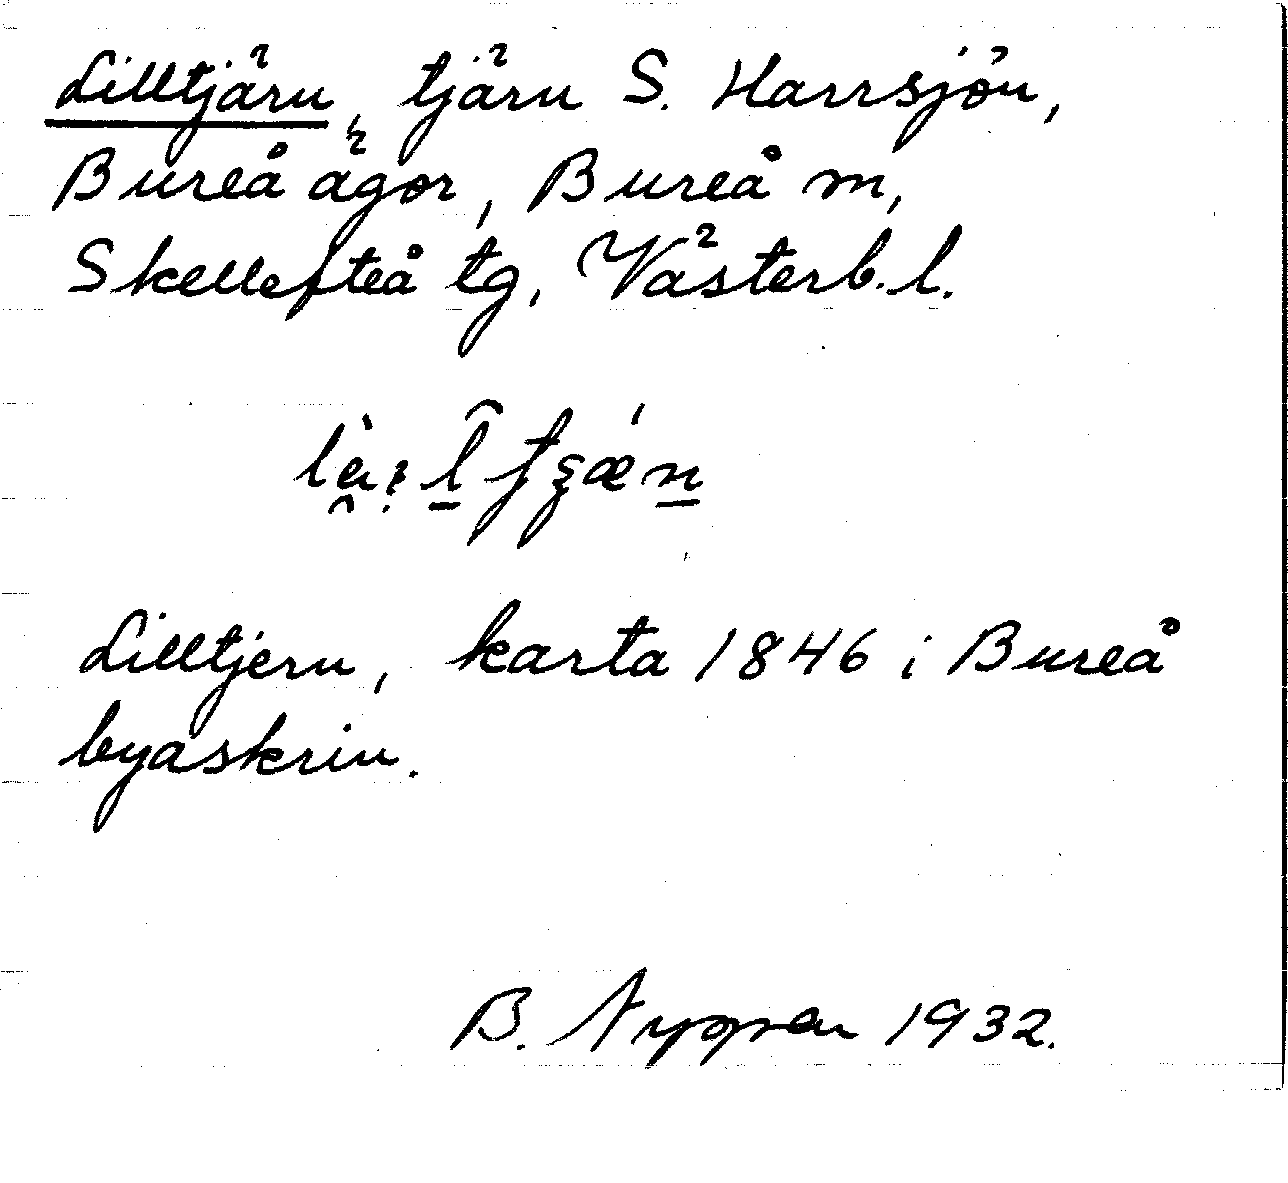 Lilltjärn, tjärn S. Harrsjön,
Bureå ägor, Bureå m,
Skellefteå tg, Västerb. l.
Lilltjern, karta 1846 i Bureå
byaskrin.
B. 1932.